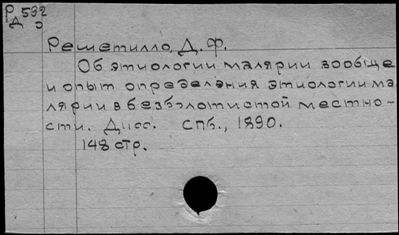 Р 532
Д 3
Решетилло, Д. Ф.
Об этиологии малярии вообще
и опыт определения этиологии ма
лярии в безболотистой местно-
сти. Дисс. СПб., 1890.
148 стр.